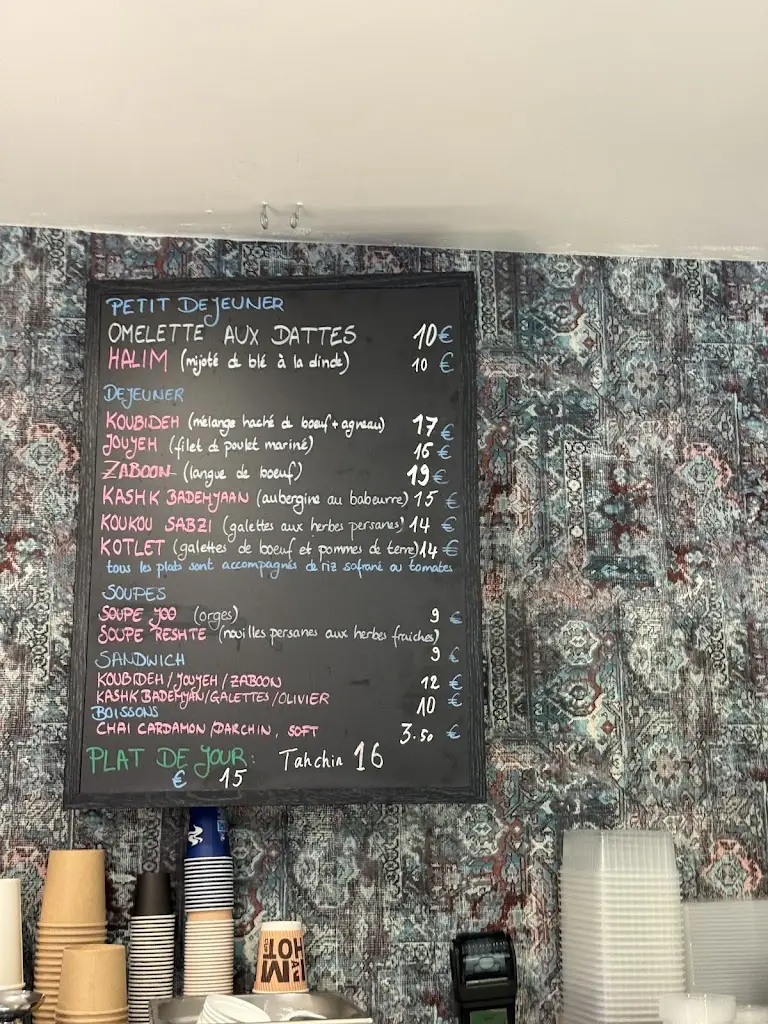 PETIT DEJEUNER
OMELETTE AUX DATTES 10€
HALIM (mijoté de blé à la dinde) 10 €
DEJEUNER
KOUBIDEH (mélange haché de boeuf + agneau) 17 €
JOUJEH (filet de poulet mariné) 16 €
ZABOON (langue de boeuf) 19€
KASHK BADEMJAAN (aubergine au babeurre) 15 €
KOUKOU SABZI (galettes aux herbes persanes) 14 €
KOTLET (galettes de boeuf et pommes de terre) 14 €
tous les plats sont accompagnés de riz safrané ou tomates
SOUPES
SOUPE JOO (orges) 9 €
SOUPE RESHTE (nouilles persanes aux herbes fraiches) 9 €
SANDWICH
KOUBIDEH / JOUJEH / ZABOON 12 €
KASHK BADEMJAN / GALETTES / OLIVIER 10 €
BOISSONS
CHAI CARDAMON / DARCHIN, SOFT 3.50 €
PLAT DE JOUR: Tahchin 16
€ 15
HOT